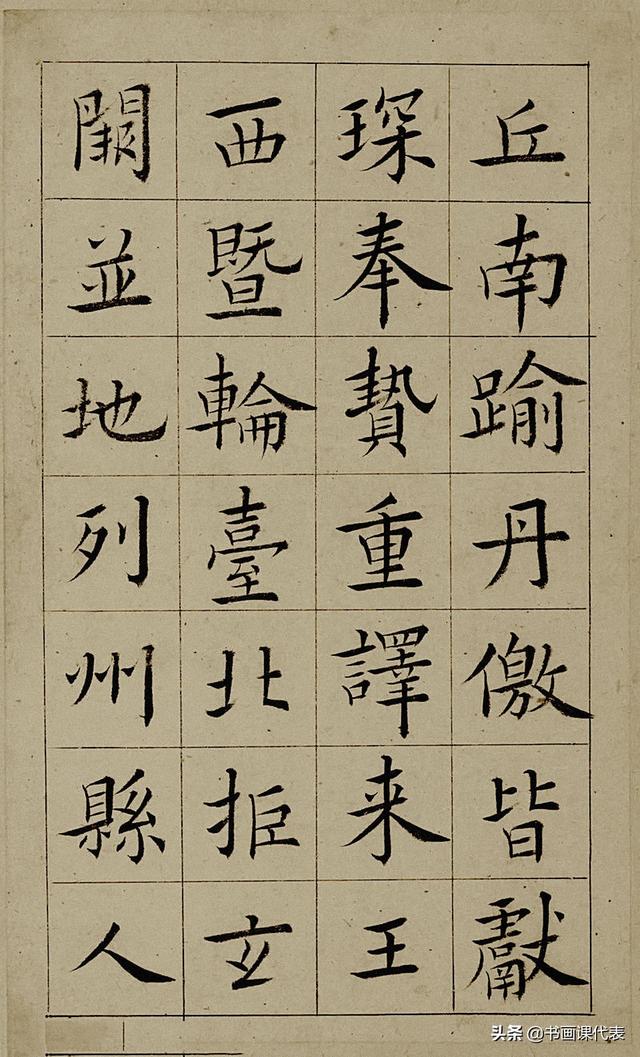 丘南踰丹儌皆獻
琛奉贄重譯来王
西暨輪臺北拒玄
闕並地列州縣人
头条 @书画课代表